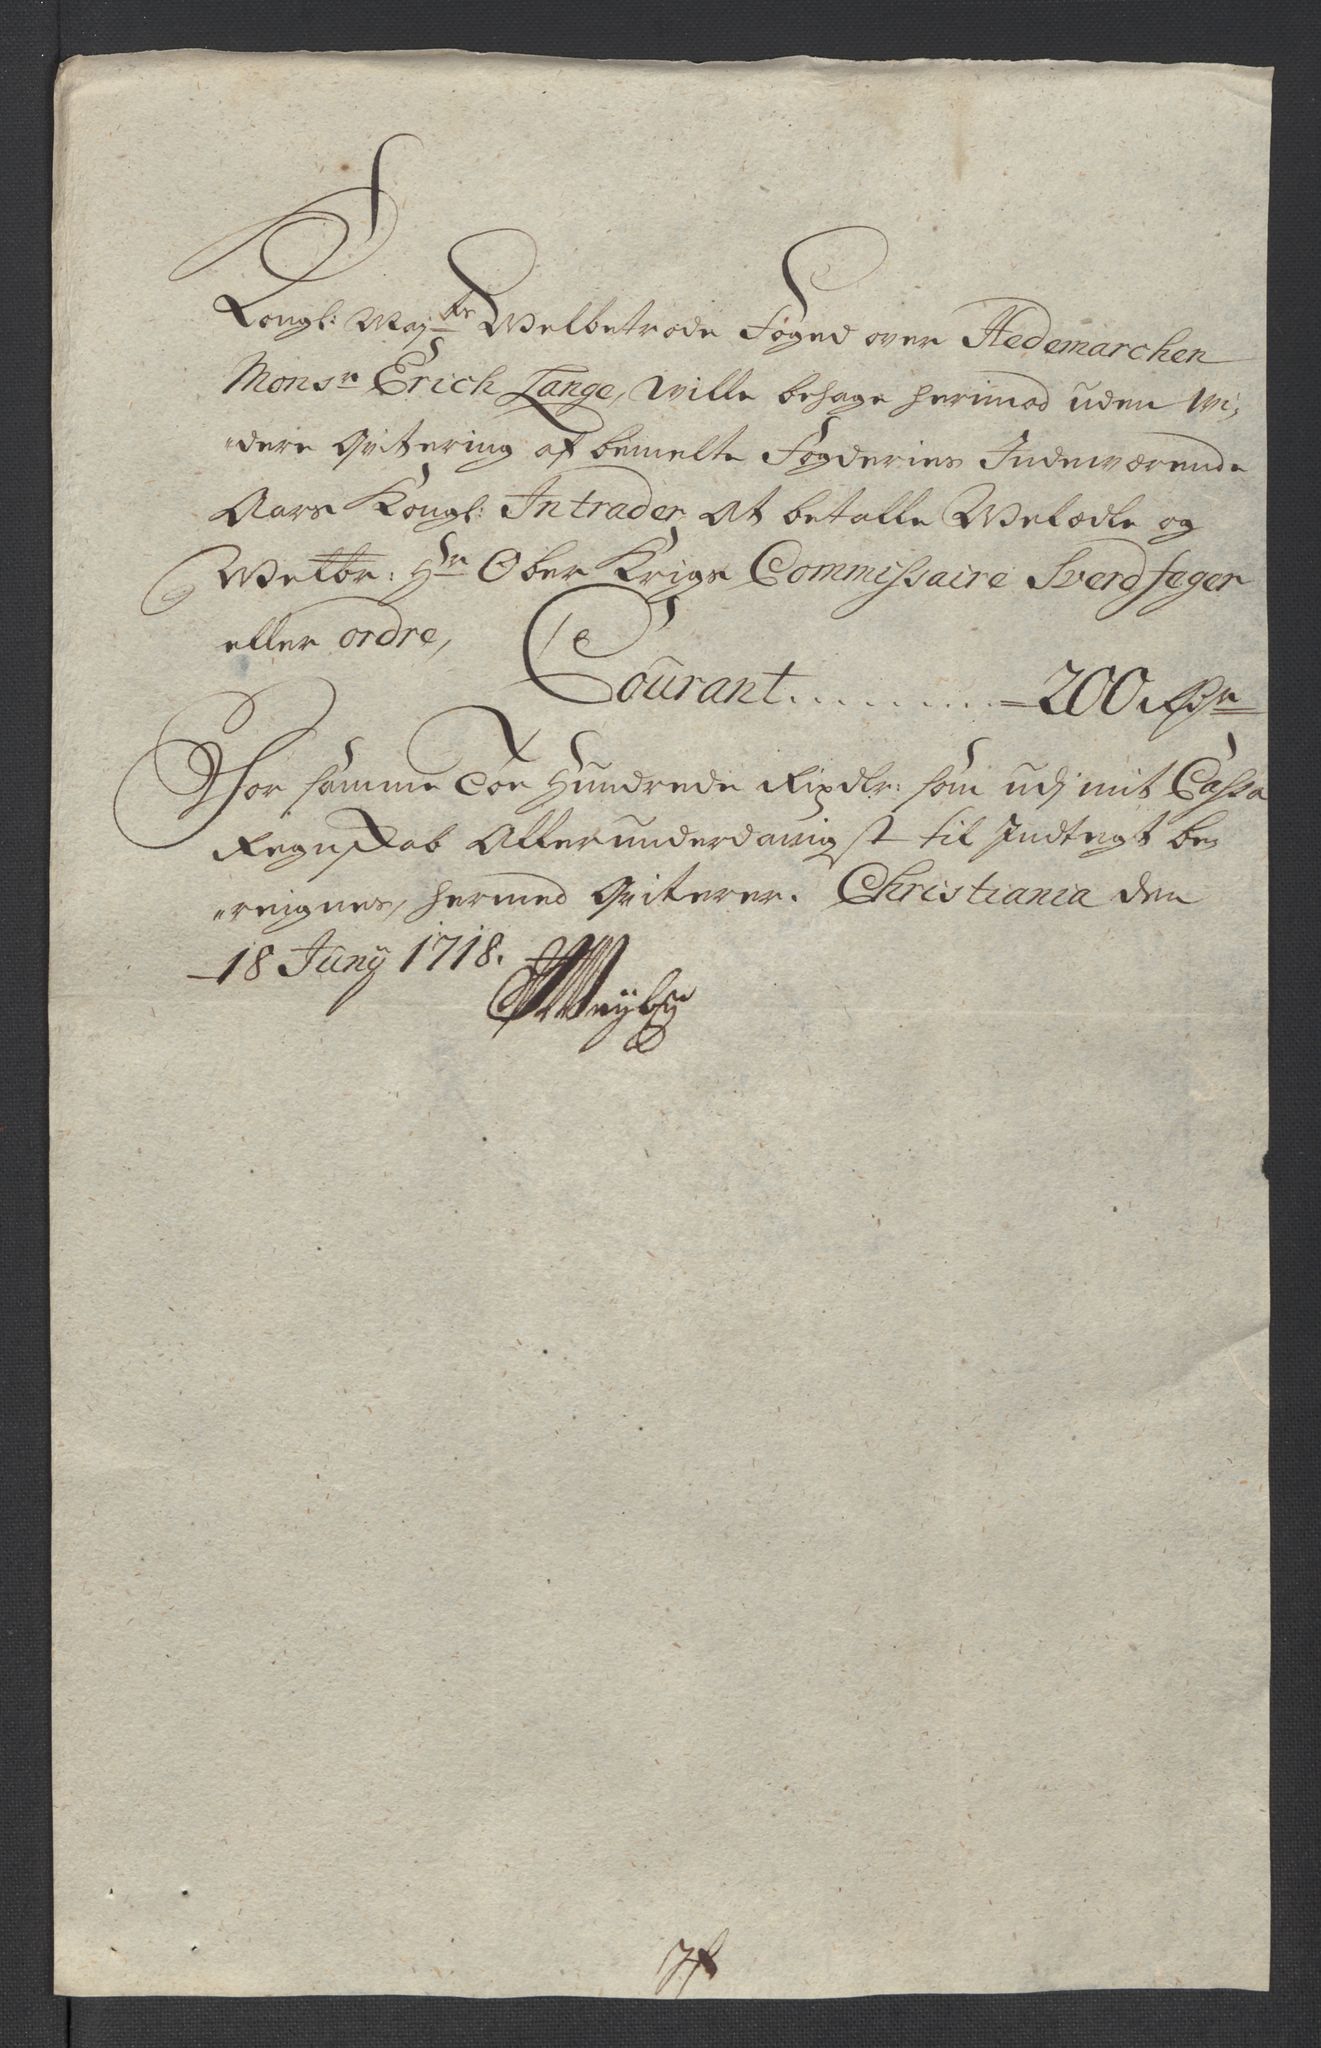 Kongl: Maj:ts Welbetrode Foged over Hedemarchen
Monsr Erich Lange, wille behage herimod uden wi,
„dere Qvitering af bemelte Fogderies Indeværende
Aars Kongl: Intrader at betalle Welædle og
Welbr: Hr Ober Krigs Commissaire Sverdfeger
eller ordre,
Courant ........ 200 Rdr
For samme Toe Hundrede Rixdlr: som udj mit Cassa
Regnskab Allerunderdanigst til Indtegt be„
„reignes, hermed Qviterer. Christiania den
18 Juny 1718.